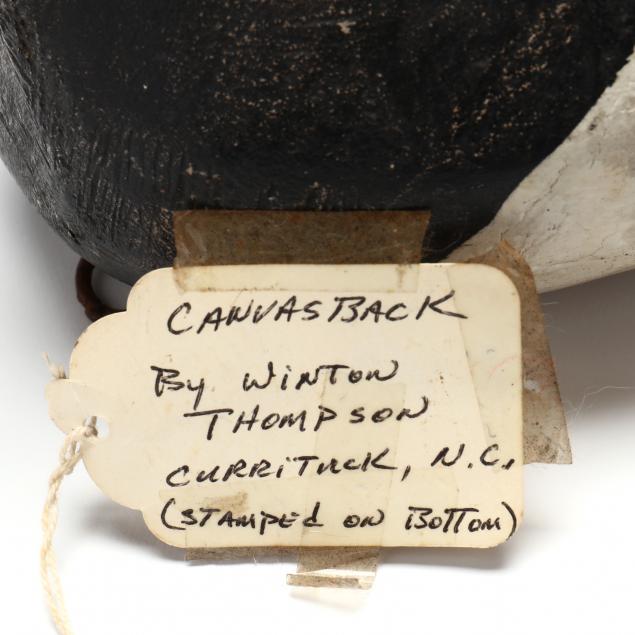 CANVASBACK
By WINTON
THOMPSON
CURRITUCK, N.C.
(STAMPEd ON BOTTOM)